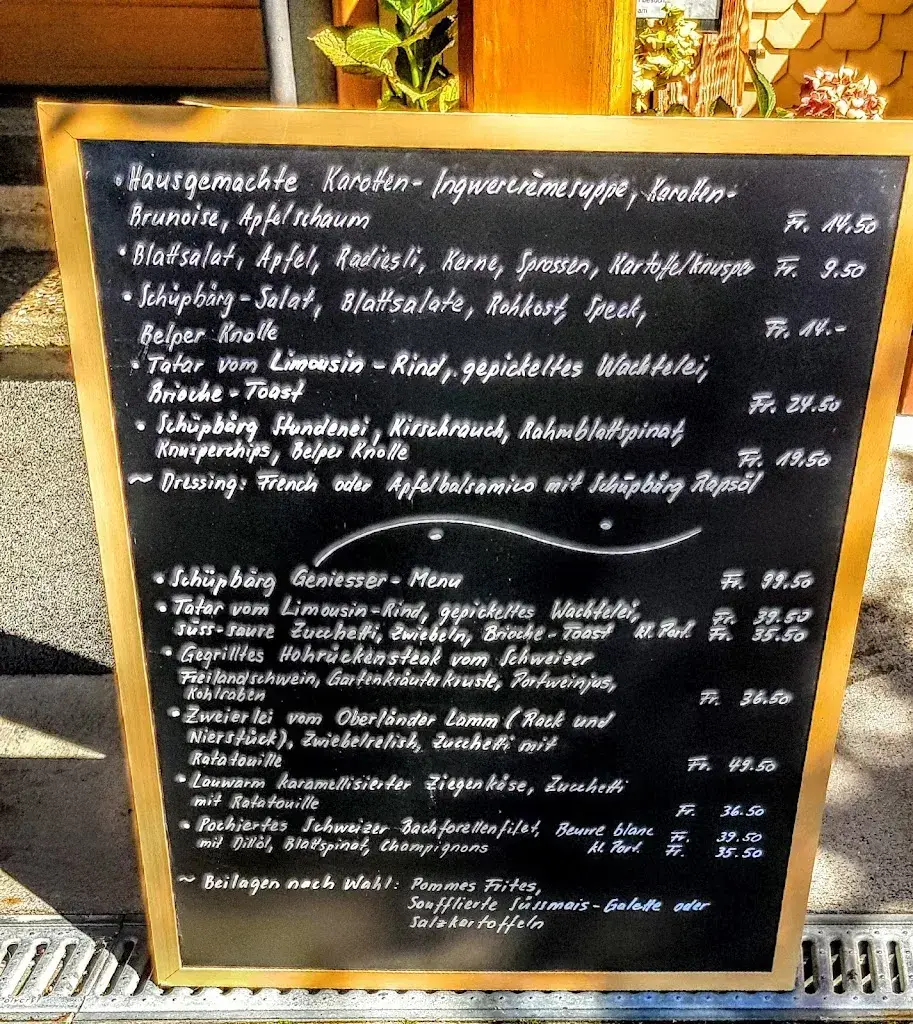 • Hausgemachte Karotten- Ingwercrèmesuppe, Karotten-
Brunoise, Apfelschaum Fr. 14.50
• Blattsalat, Apfel, Radiesli, Kerne, Sprossen, Kartoffelknusper Fr. 9.50
• Schüpbärg-Salat, Blattsalate, Rohkost, Speck,
Belper Knolle Fr. 14.-
• Tatar vom Limousin-Rind, gepickeltes Wachtelei,
Brioche-Toast Fr. 24.50
• Schüpbärg Stundenei, Kirschrauch, Rahmblattspinat,
Knusperchips, Belper Knolle Fr. 19.50
~ Dressing: French oder Apfelbalsamico mit Schüpbärg Rapsöl
• Schüpbärg Geniesser-Menu Fr. 99.50
• Tatar vom Limousin-Rind, gepickeltes Wachtelei, Fr. 39.50
süss-saure Zucchetti, Zwiebeln, Brioche-Toast kl. Port. Fr. 35.50
• Gegrilltes Hohrückensteak vom Schweizer
Freilandschwein, Gartenkräuterkruste, Portweinjus,
Kohlraben Fr. 36.50
• Zweierlei vom Oberländer Lamm (Rack und
Nierstück), Zwiebelrelish, Zucchetti mit
Ratatouille Fr. 49.50
• Lauwarm karamellisierter Ziegenkäse, Zucchetti
mit Ratatouille Fr. 36.50
• Pochiertes Schweizer Bachforellenfilet, Beurre blanc Fr. 39.50
mit Dillöl, Blattspinat, Champignons kl. Port. Fr. 35.50
~ Beilagen nach Wahl: Pommes Frites,
Soufflierte Süssmais-Galette oder
Salzkartoffeln